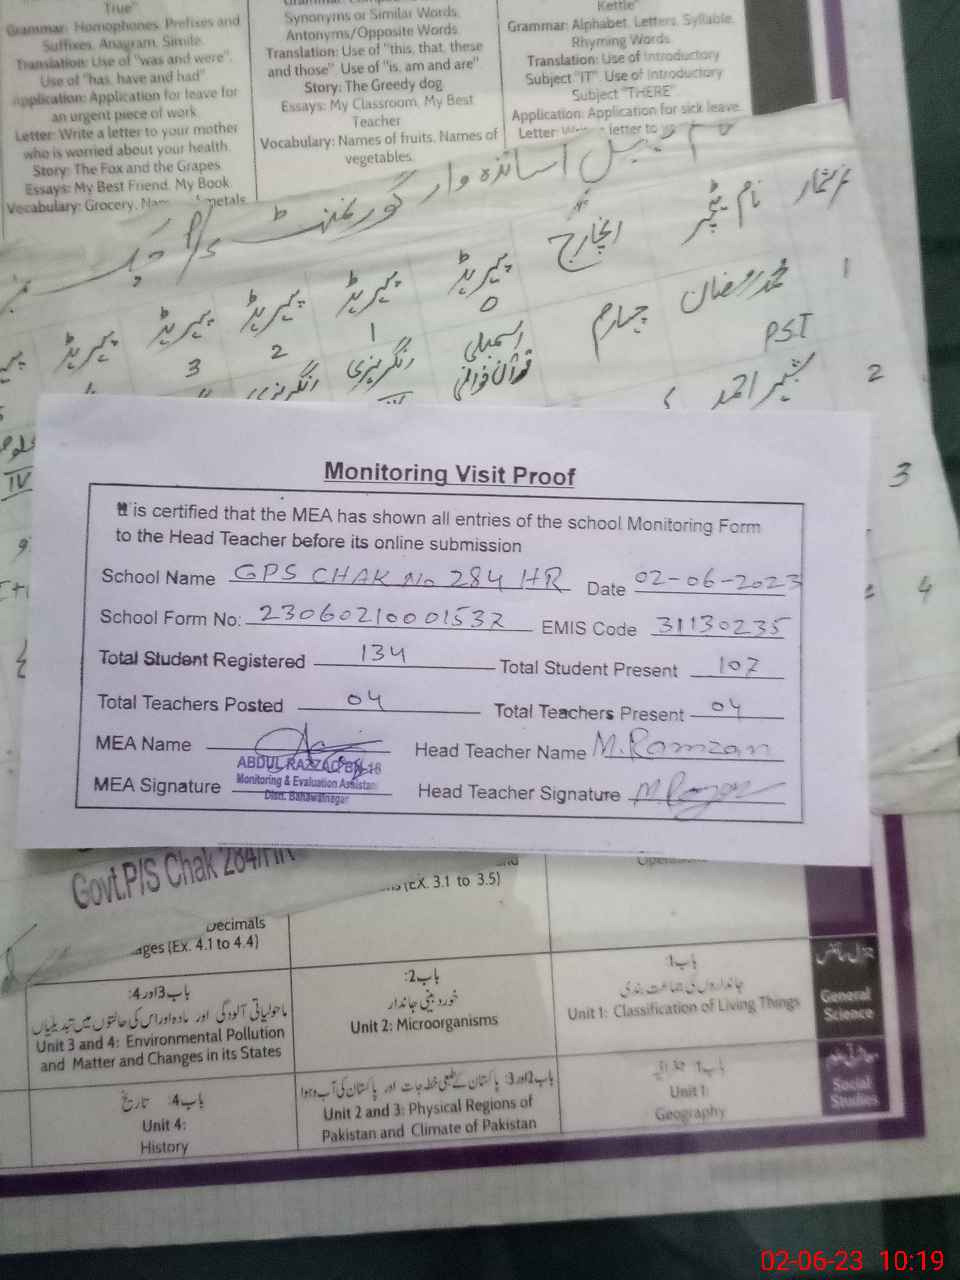 True"
Grammar: Homophones, Prefixes and
Suffixes, Anagram, Simile.
Translation: Use of "was and were".
Use of "has, have and had"
Application: Application for leave for
an urgent piece of work
Letter: Write a letter to your mother
who is worried about your health.
Story: The Fox and the Grapes
Essays: My Best Friend, My Book
Vocabulary: Grocery,
Synonyms or Similar Words,
Antonyms/Opposite Words
Translation: Use of "this, that, these
and those". Use of "is, am and are"
Story: The Greedy dog
Essays: My Classroom, My Best
Teacher
Vocabulary: Names of fruits, Names of
vegetables.
Kettle"
Grammar: Alphabet, Letters, Syllable,
Rhyming Words
Translation: Use of Introductory
Subject "IT". Use of Introductory
Subject "THERE"
Application: Application for sick leave.
Letter: letter to
ٹائم ٹیبل اساتذہ وار گورنمنٹ P/S چک
نمبرشمار نام ٹیچر انچارج پیریڈ پیریڈ پیریڈ پیریڈ پیریڈ
0 1 2 3
1 محمد رمضان چہارم اسمبلی انگریزی انگریزی
PST قرآن خوانی
2 شبیر احمد
3
4
IV
Monitoring Visit Proof
It is certified that the MEA has shown all entries of the school Monitoring Form
to the Head Teacher before its online submission
School Name GPS CHAK No 284 HR Date 02-06-2023
School Form No: 23060210001537 EMIS Code 31130235
Total Student Registered 134 Total Student Present 107
Total Teachers Posted 04 Total Teachers Present 04
MEA Name Head Teacher Name M.Ramzan
ABDUL RAZZAQ BS-16
Monitoring & Evaluation Assistant
Distt. Bahawalnagar
MEA Signature Head Teacher Signature
Govt.P/S Chak 284/HR
Decimals
(Ex. 4.1 to 4.4)
(EX. 3.1 to 3.5)
باب 3 اور 4:
ماحولیاتی آلودگی اور مادہ اور اس کی حالتوں میں تبدیلیاں
Unit 3 and 4: Environmental Pollution
and Matter and Changes in its States
باب 2:
خوردبینی جاندار
Unit 2: Microorganisms
باب 1:
جانداروں کی جماعت بندی
Unit 1: Classification of Living Things
جنرل سائنس
General
Science
باب 4: تاریخ
Unit 4:
History
باب 2 اور 3: پاکستان کے طبعی خطہ جات اور پاکستان کی آب و ہوا
Unit 2 and 3: Physical Regions of
Pakistan and Climate of Pakistan
باب 1: جغرافیہ
Unit 1:
Geography
Social
Studies
02-06-23 10:19